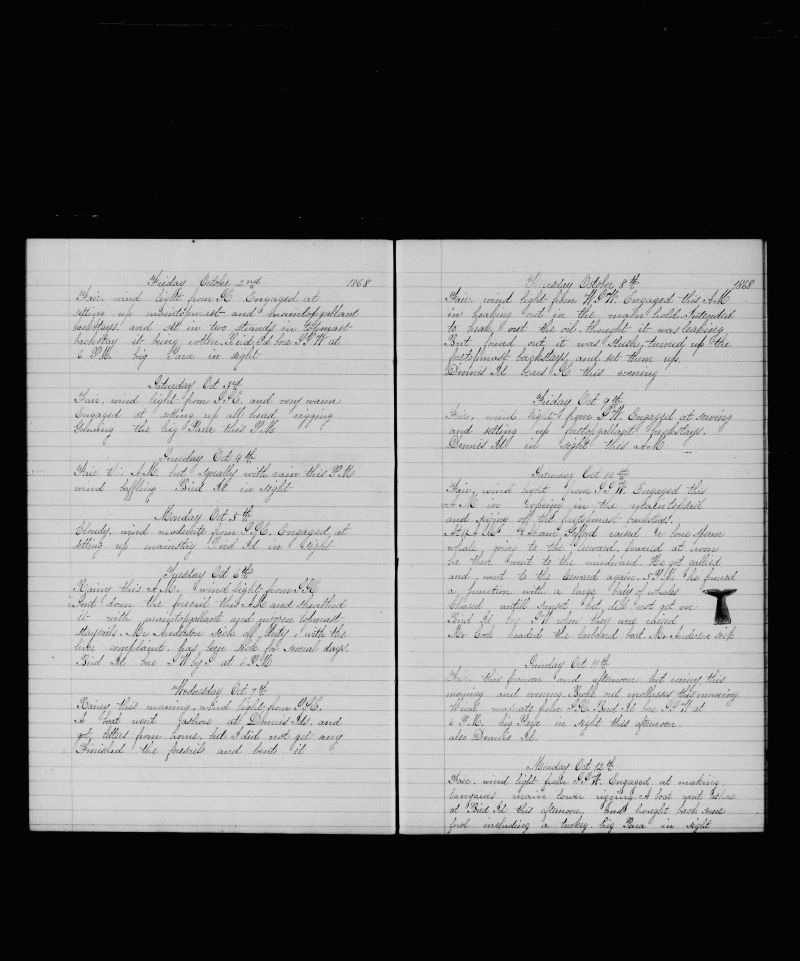 Friday October 2nd 1868
Fair, wind light from SE Engaged at
setting up maintopmast and maintopgallant
backstays. and set in two strands in topmast
backstay it being rotten. Bird Isl bore SSW at
6 P.M. big Para in sight
Saturday Oct 3rd
Fair, wind light from SSE. and very warm
Engaged at setting up all head rigging
the big Para this P.M
Sunday Oct 4th
Fair this A.M. but squally with rain this P.M
wind baffling Bird Isl in sight
Monday Oct 5th
Cloudy, wind moderate from SSE. Engaged at
setting up mainstay Bird Isl in sight
Tuesday Oct 6th
Rainy this A.M. wind light from SE
Sent down the foresail this A.M and
it with maintopgallant and mizzen topmast
staysails. Mr Anderson sick off duty, with the
liver complaint. has been sick for several days.
Bird Isl bore SW by S at 6 P.M
Wednesday Oct 7th
Rainy this morning, wind light from SSE.
A boat went ashore at Dennis Isl, and
got letters from home, but I did not get any
Finished the foresail and bent it
Thursday October 8th 1868
Fair, wind light from W.S.W. Engaged this A.M
in breaking out in the main hold. Intended
to break out the oil. thought it was leaking
But found out it was slush, turned up the
foretopmast backstays, and set them up.
Dennis Isl bears SE this evening
Friday Oct 9th
Fair, wind light from SW. Engaged at serving
and setting up foretopgallant backstays.
Dennis Isl in sight this A.M
Saturday Oct 10th
Fair, wind light from SSW. Engaged this
A.M in roping in the maintopsail
and the foretopmast backstays.
At 9 A.M. Gifford raised a lone sperm
whale going to the leeward, lowered at noon
he then went to the windward. He got gallied
and went to the leeward again. 5 P.M he formed
a junction with a large body of whales
chased untill sunset, but did not get on
Bird Isl bore SW when they were raised
Mr Cook headed the larboard boat. Mr Anderson sick
Sunday Oct 11th
Fair this forenoon and afternoon but rainy this
morning and evening. Broke out molasses this morning
Wind moderate from SE. Bird Isl bore SSW at
6 P.M. big Para in sight this afternoon.
also Dennis Isl.
Monday Oct 12th
Fair, wind light from SSW. Engaged at making
lanyards main lower rigging. A boat went ashore
at Bird Isl this afternoon, and brought back some
fowl including a turkey. big Para in sight